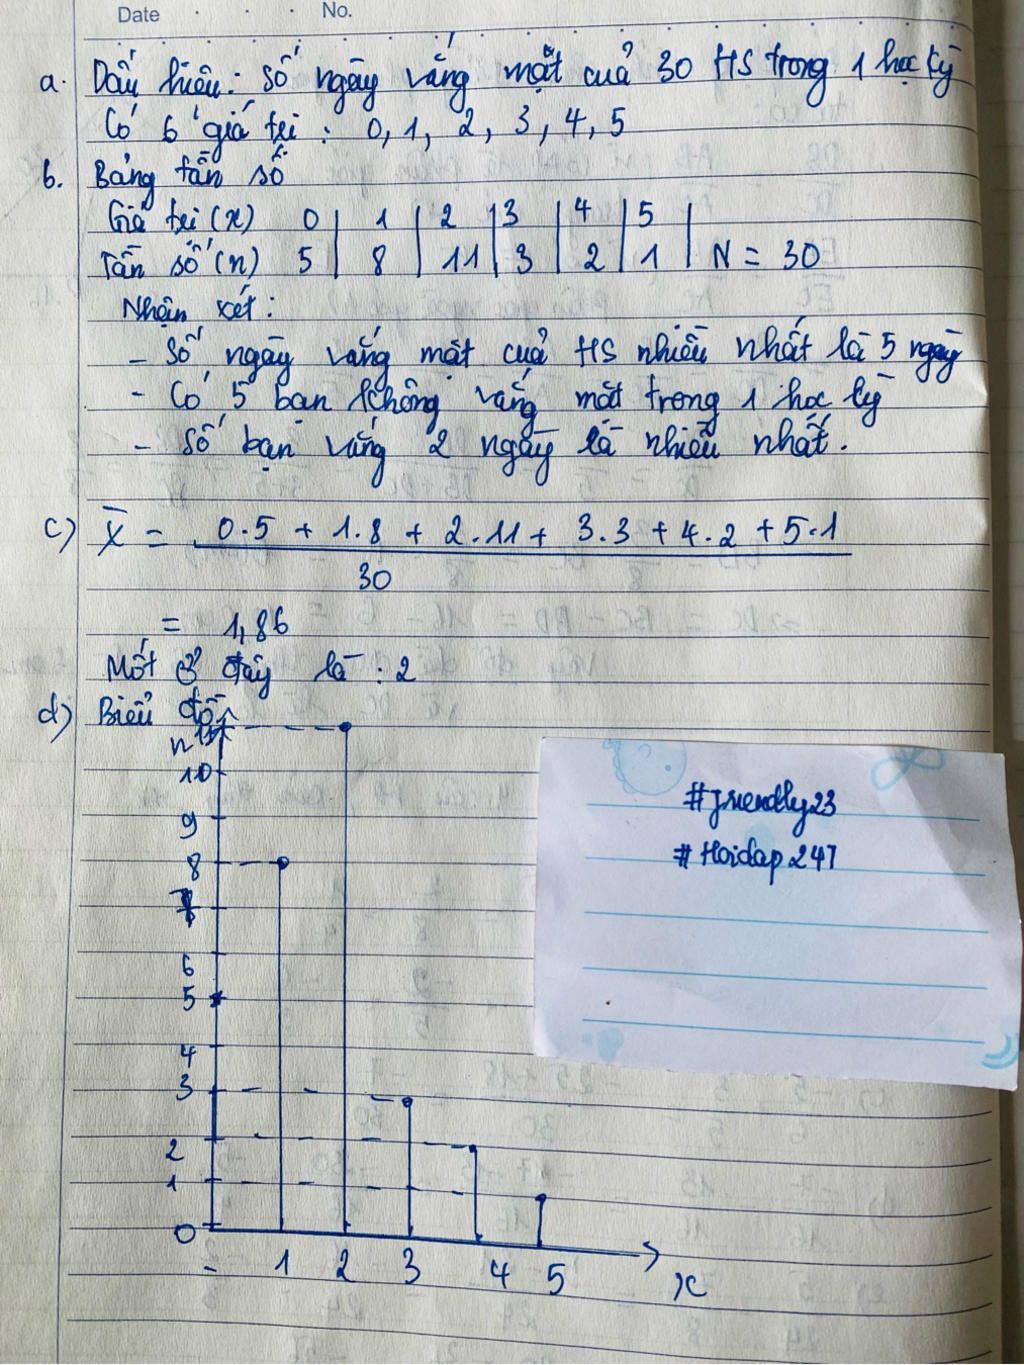 Date No.
a. Dấu hiệu: Số ngày vắng mặt của 30 HS trong 1 học kỳ
Có 6 giá trị : 0, 1, 2, 3, 4, 5
b. Bảng tần số
Giá trị (x) 0 | 1 | 2 | 3 | 4 | 5 |
Tần số (n) 5 | 8 | 11 | 3 | 2 | 1 | N = 30
Nhận xét :
- Số ngày vắng mặt của HS nhiều nhất là 5 ngày
- Có 5 bạn không vắng mặt trong 1 học kỳ
- Số bạn vắng 2 ngày là nhiều nhất.
c) X̄ = 0.5 + 1.8 + 2.11 + 3.3 + 4.2 + 5.1
30
= 1,86
Mốt ở đây là : 2
d) Biểu đồ
n 11
10
9
8
7
6
5
4
3
2
1
0
1 2 3 4 5
x
#friendly23
#Hoidap247